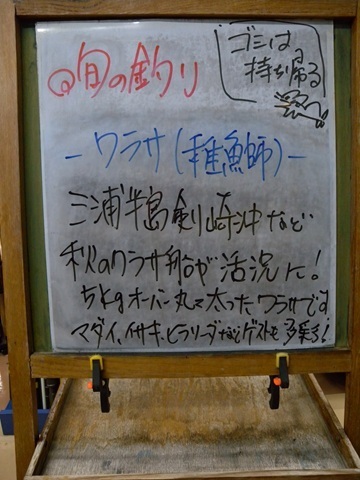 旬の釣り
ゴミは
持ち帰る
ワラサ(稚魚師)
三浦半島剣崎沖など
秋のワラサ船が活況に!
5kgオーバー丸々太ったワラサです
マダイ、イサキ、ヒラソーダなどゲストも多彩!